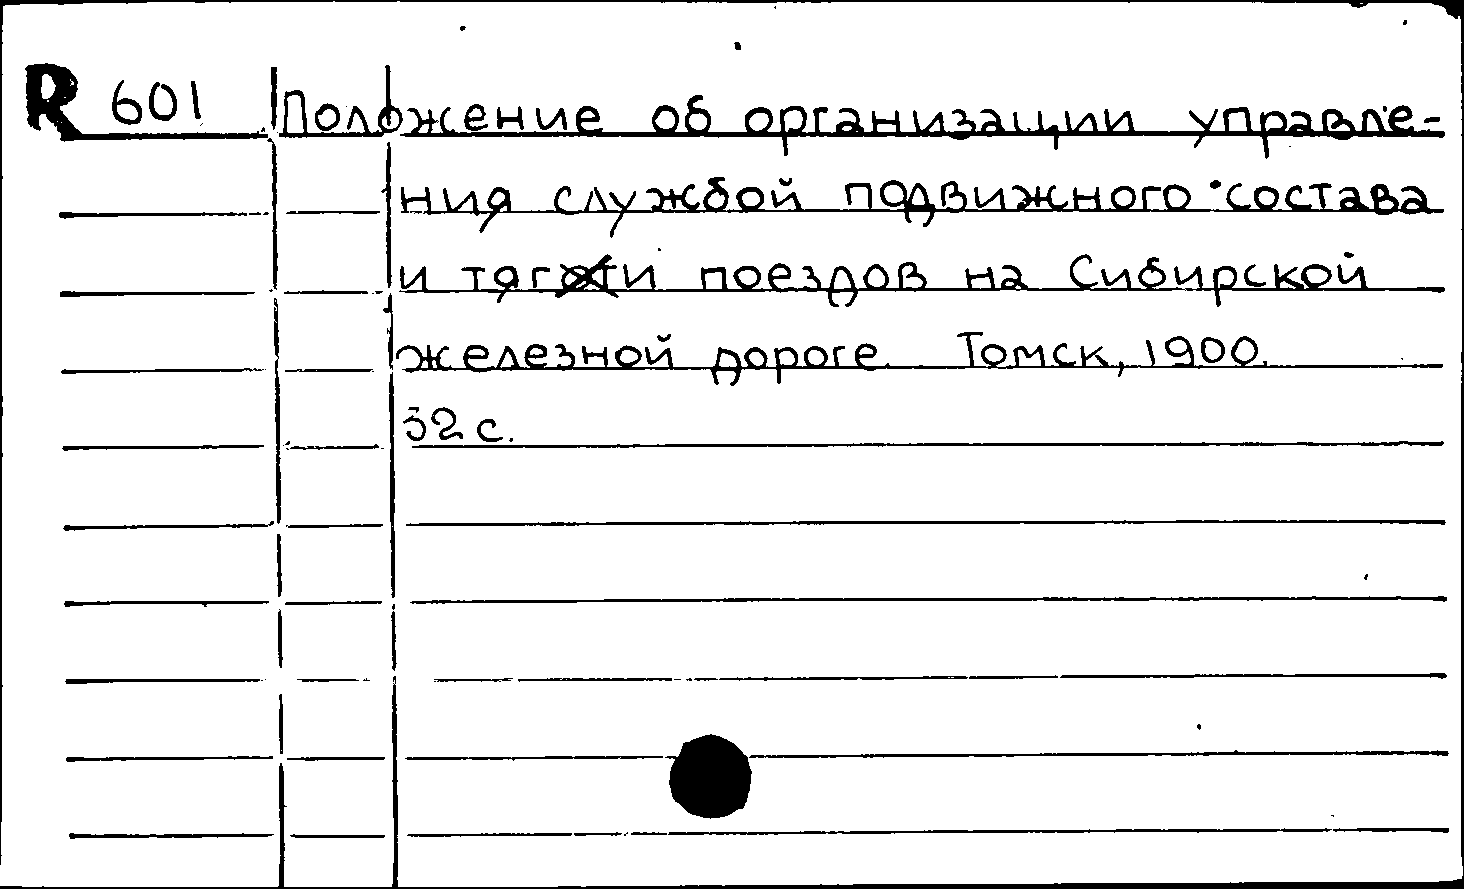 R 601 Положение об организации управле-
ния службой подвижного состава
и тяги поездов на Сибирской
железной дороге. Томск, 1900.
32 с.